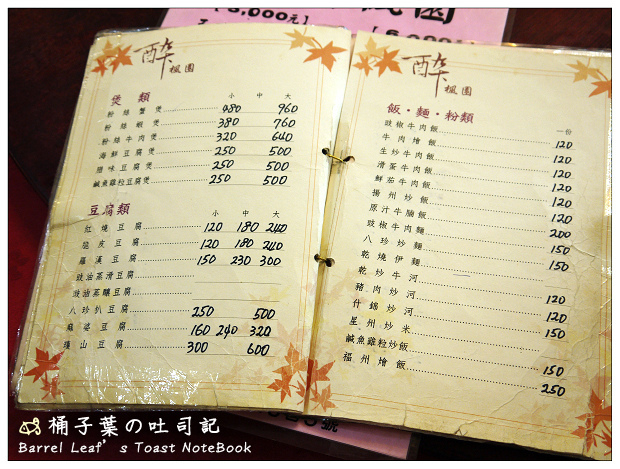 [3,000元]
[6,000元]
醉
楓園
煲類 小 中 大
粉絲蟹煲 480 960
粉絲蝦煲 380 760
粉絲牛肉煲 320 640
海鮮豆腐煲 250 500
腊味豆腐煲 250 500
鹹魚雞粒豆腐煲 250 500
豆腐類 小 中 大
紅燒豆腐 120 180 240
脆皮豆腐 120 180 240
羅漢豆腐 150 230 300
豉油蒸滑豆腐
豉油蒸釀豆腐
八珍扒豆腐 250 500
麻婆豆腐 160 240 320
瓊山豆腐 300 600
醉
楓園
飯・麵・粉類 一份
豉椒牛肉飯 120
牛肉燴飯 120
生炒牛肉飯 120
滑蛋牛肉飯 120
鮮茄牛肉飯 120
揚州炒飯 120
原汁牛腩飯 200
豉椒牛肉麵 150
八珍炒麵 150
乾燒伊麵
乾炒牛河 120
豬肉炒河 120
什錦炒河 150
星州炒米
鹹魚雞粒炒飯 150
福州燴飯 250
桶子葉の吐司記
Barrel Leaf's Toast NoteBook